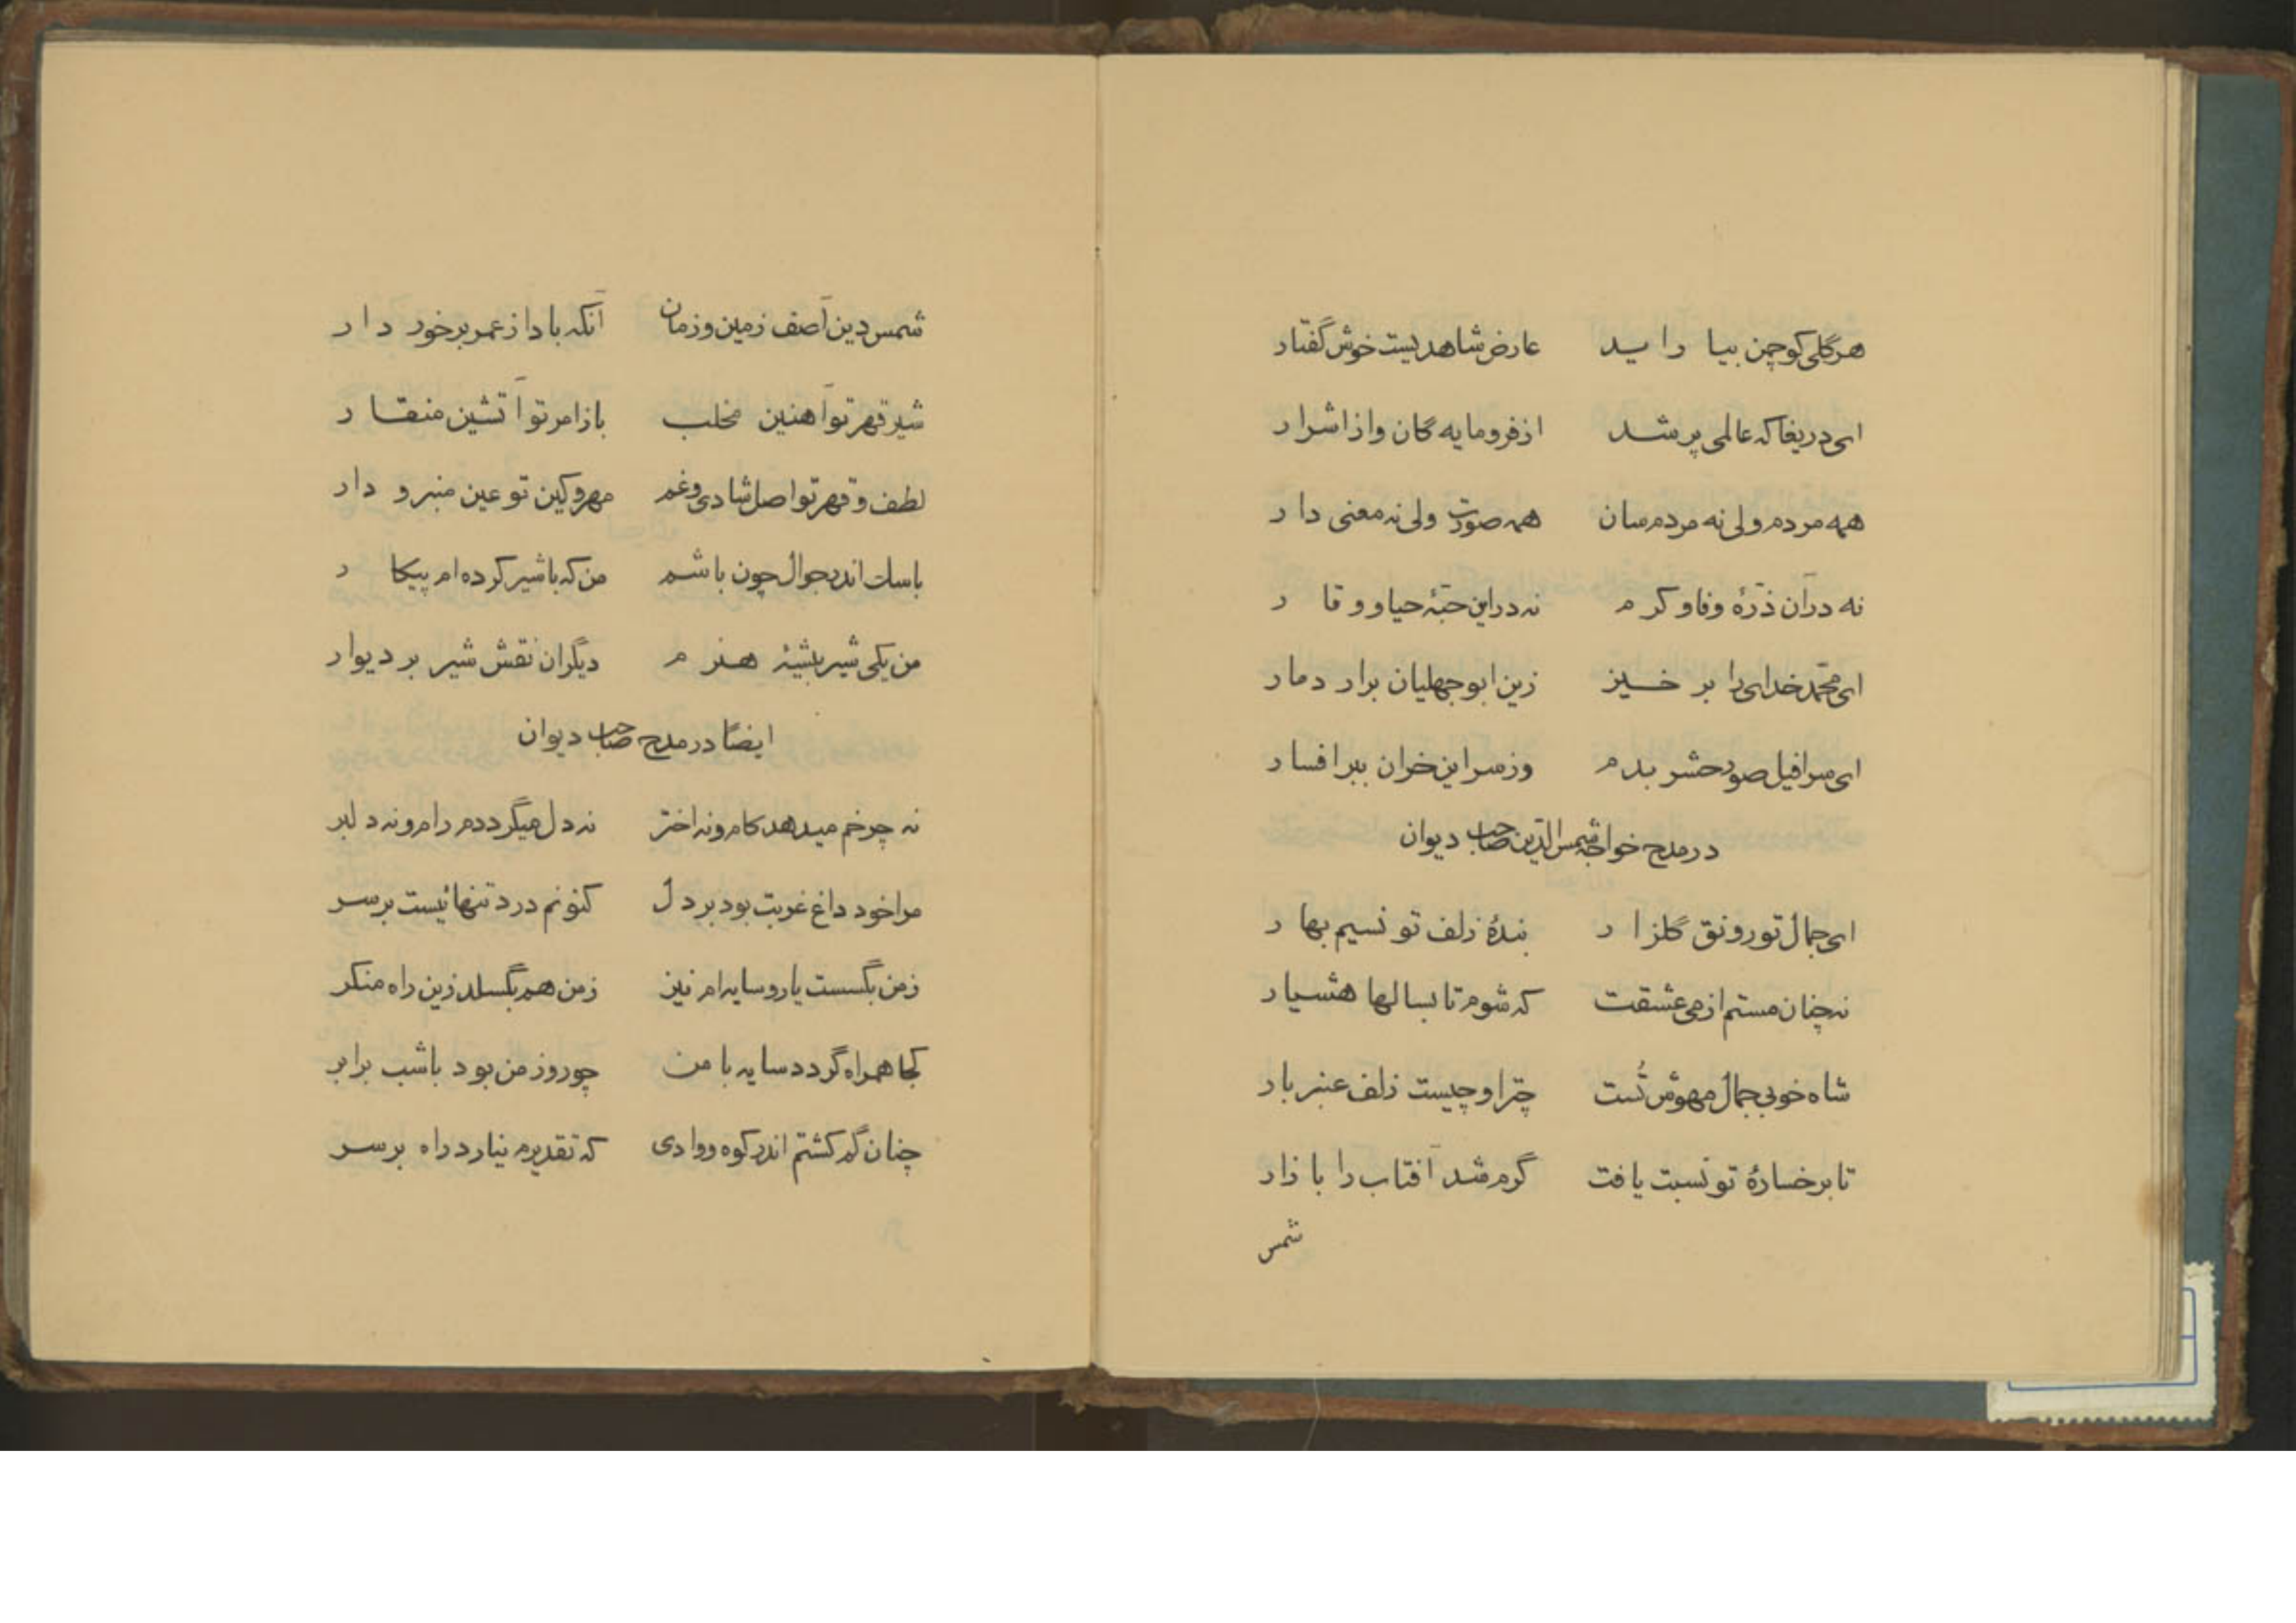 هر گلی کو چمن بیاراید عارض شاهدیست خوش گفتار
ای دریغا که عالمی پر شد از فرومایه گان و از اشرار
همه مردم ولی نه مردم سان همه صورت ولی نه معنی دار
نه در آن ذرّهٔ وفا و کرم نه در این حبّهٔ حیا و وقار
ای محمّد خدای را بر خیز زین ابوجهلیان برار دمار
ای سرافیل صور حشر بدم وز سر این خران ببر افسار
در مدح خواجه شمس الدّین صاحب دیوان
ای جمال تو رونق گلزار بندهٔ زلف تو نسیم بهار
نه چنان مستم از می عشقت که شوم تا بسالها هشیار
شاه خوبی جمال مهوش تُست چتر او چیست زلف عنبر بار
تا برخسارهٔ تو نسبت یافت گرم شد آفتاب را بازار
شمس
شمس دین آصف زمین و زمان آنکه باد از عمر برخوردار
شیر قهر تو آهنین مخلب باز امر تو آتشین منقار
لطف و قهر تو اصل شادی و غم مهر و کین تو عین منبر و دار
با سک اندر جوال چون باشم من که با شیر کرده ام پیکار
من یکی شیر بیشهٔ هنرم دیگران نقش شیر بر دیوار
ایضاً در مدح صاحب دیوان
نه چرخم میدهد کام و نه اختر نه دل میگرددم رام و نه دلبر
مرا خود داغ غربت بود بر دل کنونم درد تنهائیست بر سر
زمن بگسست یار و سایه ام نیز زمن هم بگسلد زین راه منکر
کجا همراه گردد سایه با من چو روز من بود با شب برابر
چنان گم کشتم اندر کوه و وادی که تقدیرم نیارد راه بر سر